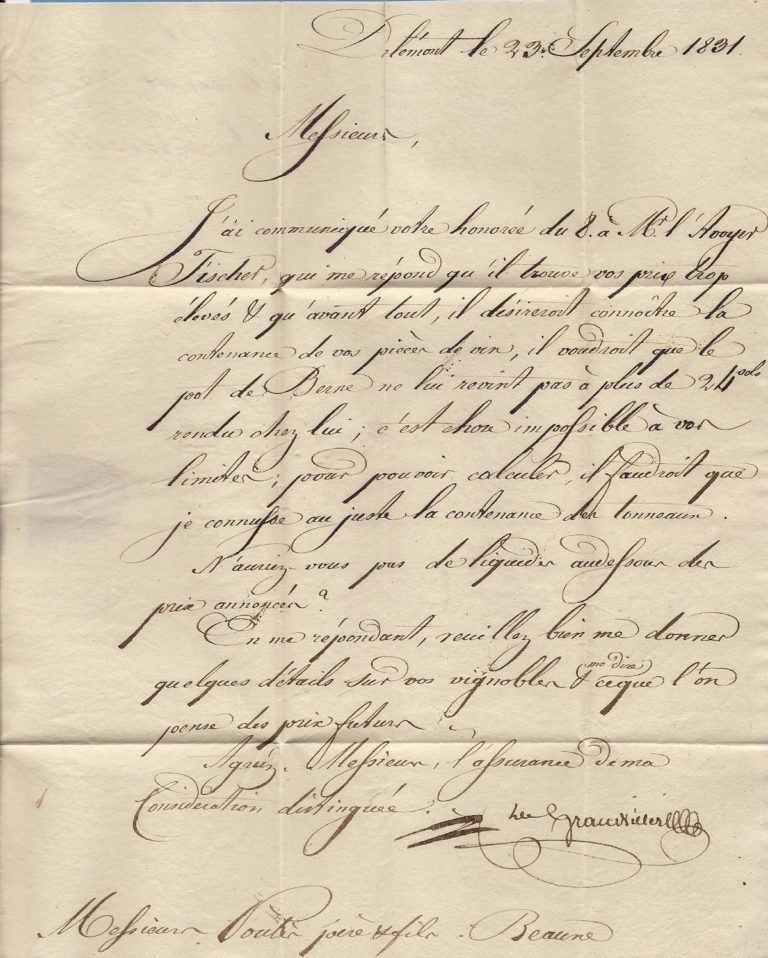 Delémont le 23. Septembre 1831.
Messieurs,
J'ai communiqué votre honorée du 8. à Mr. l'Avoyer
Fischer, qui me répond qu'il trouve vos prix trop
élevés & qu'avant tout, il désireroit connoître la
contenance de vos pièces de vin, il voudroit que le
pot de Berne ne lui revint pas à plus de 24 sols
rendu chez lui; c'est chose impossible à vos
limites; pour pouvoir calculer, il faudroit que
je connusse au juste la contenance des tonneaux.
N'auriez-vous pas de liquides audessous des
prix annoncés?
En me répondant, veuillez bien me donner
quelques détails sur vos vignobles & me dire ceque l'on
pense des prix futurs.
Agréez, Messieurs, l'assurance de ma
Considération distinguée.
Messieurs père & fils. Beaune